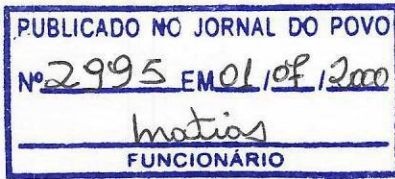 PUBLICADO NO JORNAL DO POVO
Nº 2995 EM 01/07/2000
Matias
FUNCIONÁRIO